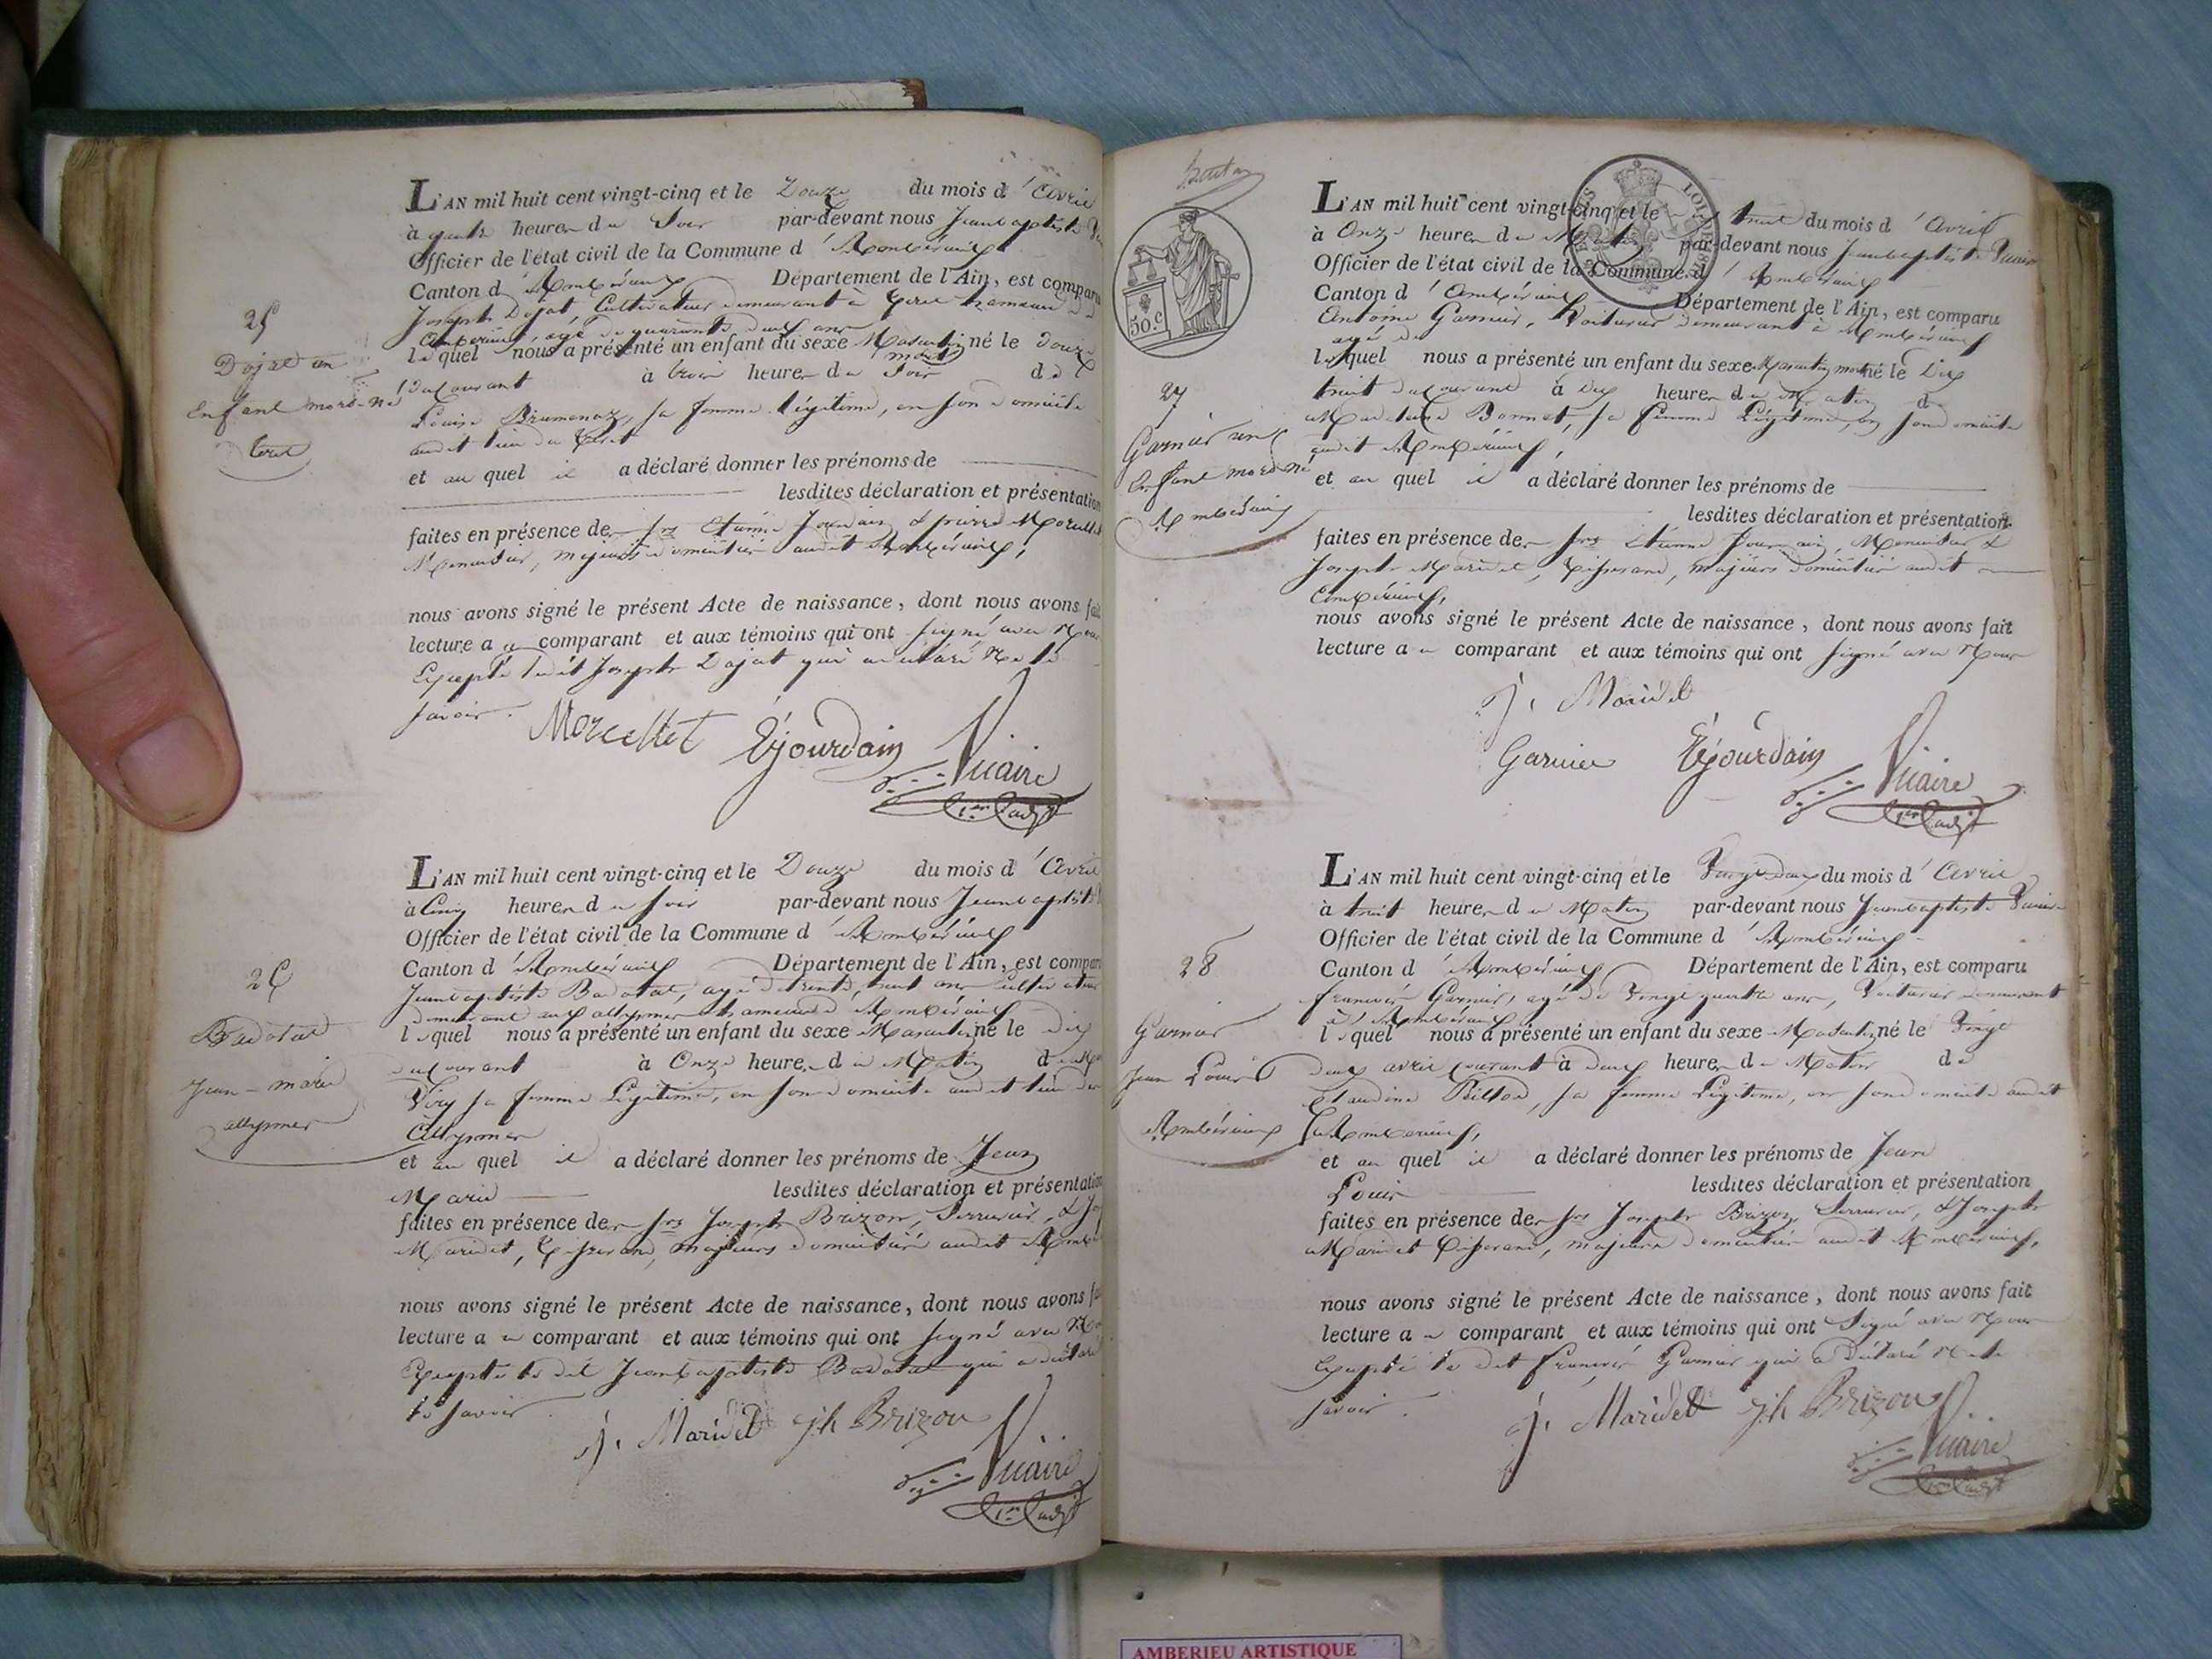 25
Dojat un
Enfant mort-né
Teret
L'AN mil huit cent vingt-cinq et le Douze du mois d'Avril
à quatre heures du Soir par-devant nous Jeanbaptiste
Officier de l'état civil de la Commune d'Ambérieux
Canton d'Ambérieux Département de l'Ain, est comparu
Joseph Dojat, Cultivateur demeurant à Teret hameau
Ambérieux, agé de quarante deux ans
lequel nous a présenté un enfant du sexe Masculin né le douze
mort
du Courant à trois heures du Soir de
Louise Brumenoz, sa femme légitime, en son domicile
audit lieu du Teret
et au quel il a déclaré donner les prénoms de
lesdites déclaration et présentation
faites en présence des srs Etienne Jourdain & pierre Morcellet
Menuisier, majeurs domiciliés audit Ambérieux,
nous avons signé le présent Acte de naissance, dont nous avons fait
lecture au comparant et aux témoins qui ont signé avec Nous
Excepté ledit Joseph Dojat qui a déclaré Ne le
savoir.
Morcellet Ejourdain Vicaire
1er adjt
26
Badotal
Jean-marie
allymer
L'AN mil huit cent vingt-cinq et le Douze du mois d'Avril
à Cinq heures du soir par-devant nous Jeanbaptiste
Officier de l'état civil de la Commune d'Ambérieux
Canton d'Ambérieux Département de l'Ain, est comparu
Jeanbaptiste Badotal, agé de trente huit ans cultivateur
demeurant aux allymer hameau d'Ambérieux
lequel nous a présenté un enfant du sexe Masculin né le dix
du courant à Onze heures du Matin de
Vory sa femme Légitime, en son domicile audit lieu des
Allymer
et au quel il a déclaré donner les prénoms de Jean
Marie lesdites déclaration et présentation
faites en présence des srs Joseph Brizon, Serrurier, &
Maridet, Tisserand, majeurs domiciliés audit
nous avons signé le présent Acte de naissance, dont nous avons
lecture au comparant et aux témoins qui ont signé avec
Excepté le dit Jeanbaptiste Badotal qui a déclaré
le savoir.
J. Maridet jh Brizon
Vicaire
1er adjt
50.c
LOI DE
27
Garnier un
Enfant mort né
Ambérieux
L'AN mil huit cent vingt-cinq et le huit du mois d'Avril
à Onze heures du Matin par-devant nous Jeanbaptiste Vicaire
Officier de l'état civil de la Commune d'Ambérieux
Canton d'Ambérieux Département de l'Ain, est comparu
Antoine Garnier, Voiturier demeurant à Ambérieux
agé de
lequel nous a présenté un enfant du sexe Masculin mort né le Dix
huit du Courant à dix heures du Matin de
Bonnet, sa femme Légitime, en son domicile
audit Ambérieux,
et au quel il a déclaré donner les prénoms de
lesdites déclaration et présentation
faites en présence des srs Etienne Jourdain, Menuisier &
Joseph Maridet, Tisserand, majeurs domiciliés audit
Ambérieux,
nous avons signé le présent Acte de naissance, dont nous avons fait
lecture au comparant et aux témoins qui ont signé avec Nous
J. Maridet
Garnier Ejourdain Vicaire
1er adjt
28
Garnier
Jean Louis
Ambérieux
L'AN mil huit cent vingt-cinq et le Vingt deux du mois d'Avril
à huit heures du Matin par-devant nous Jeanbaptiste Vicaire
Officier de l'état civil de la Commune d'Ambérieux
Canton d'Ambérieux Département de l'Ain, est comparu
francois Garnier, agé de Vingt quatre ans, Voiturier demeurant
à Ambérieux
lequel nous a présenté un enfant du sexe Masculin né le Vingt
deux avril courant à deux heures du Matin de
Claudine Billod, sa femme Légitime, en son domicile audit
Ambérieux,
et au quel il a déclaré donner les prénoms de Jean
Louis lesdites déclaration et présentation
faites en présence des srs Joseph Brizon, Serrurier, & Joseph
Maridet Tisserand, majeurs domiciliés audit Ambérieux,
nous avons signé le présent Acte de naissance, dont nous avons fait
lecture au comparant et aux témoins qui ont Signé avec Nous
Excepté le dit francois Garnier qui a Déclaré Ne le
savoir.
J. Maridet jh Brizon
Vicaire
1er adjt
AMBERIEU ARTISTIQUE